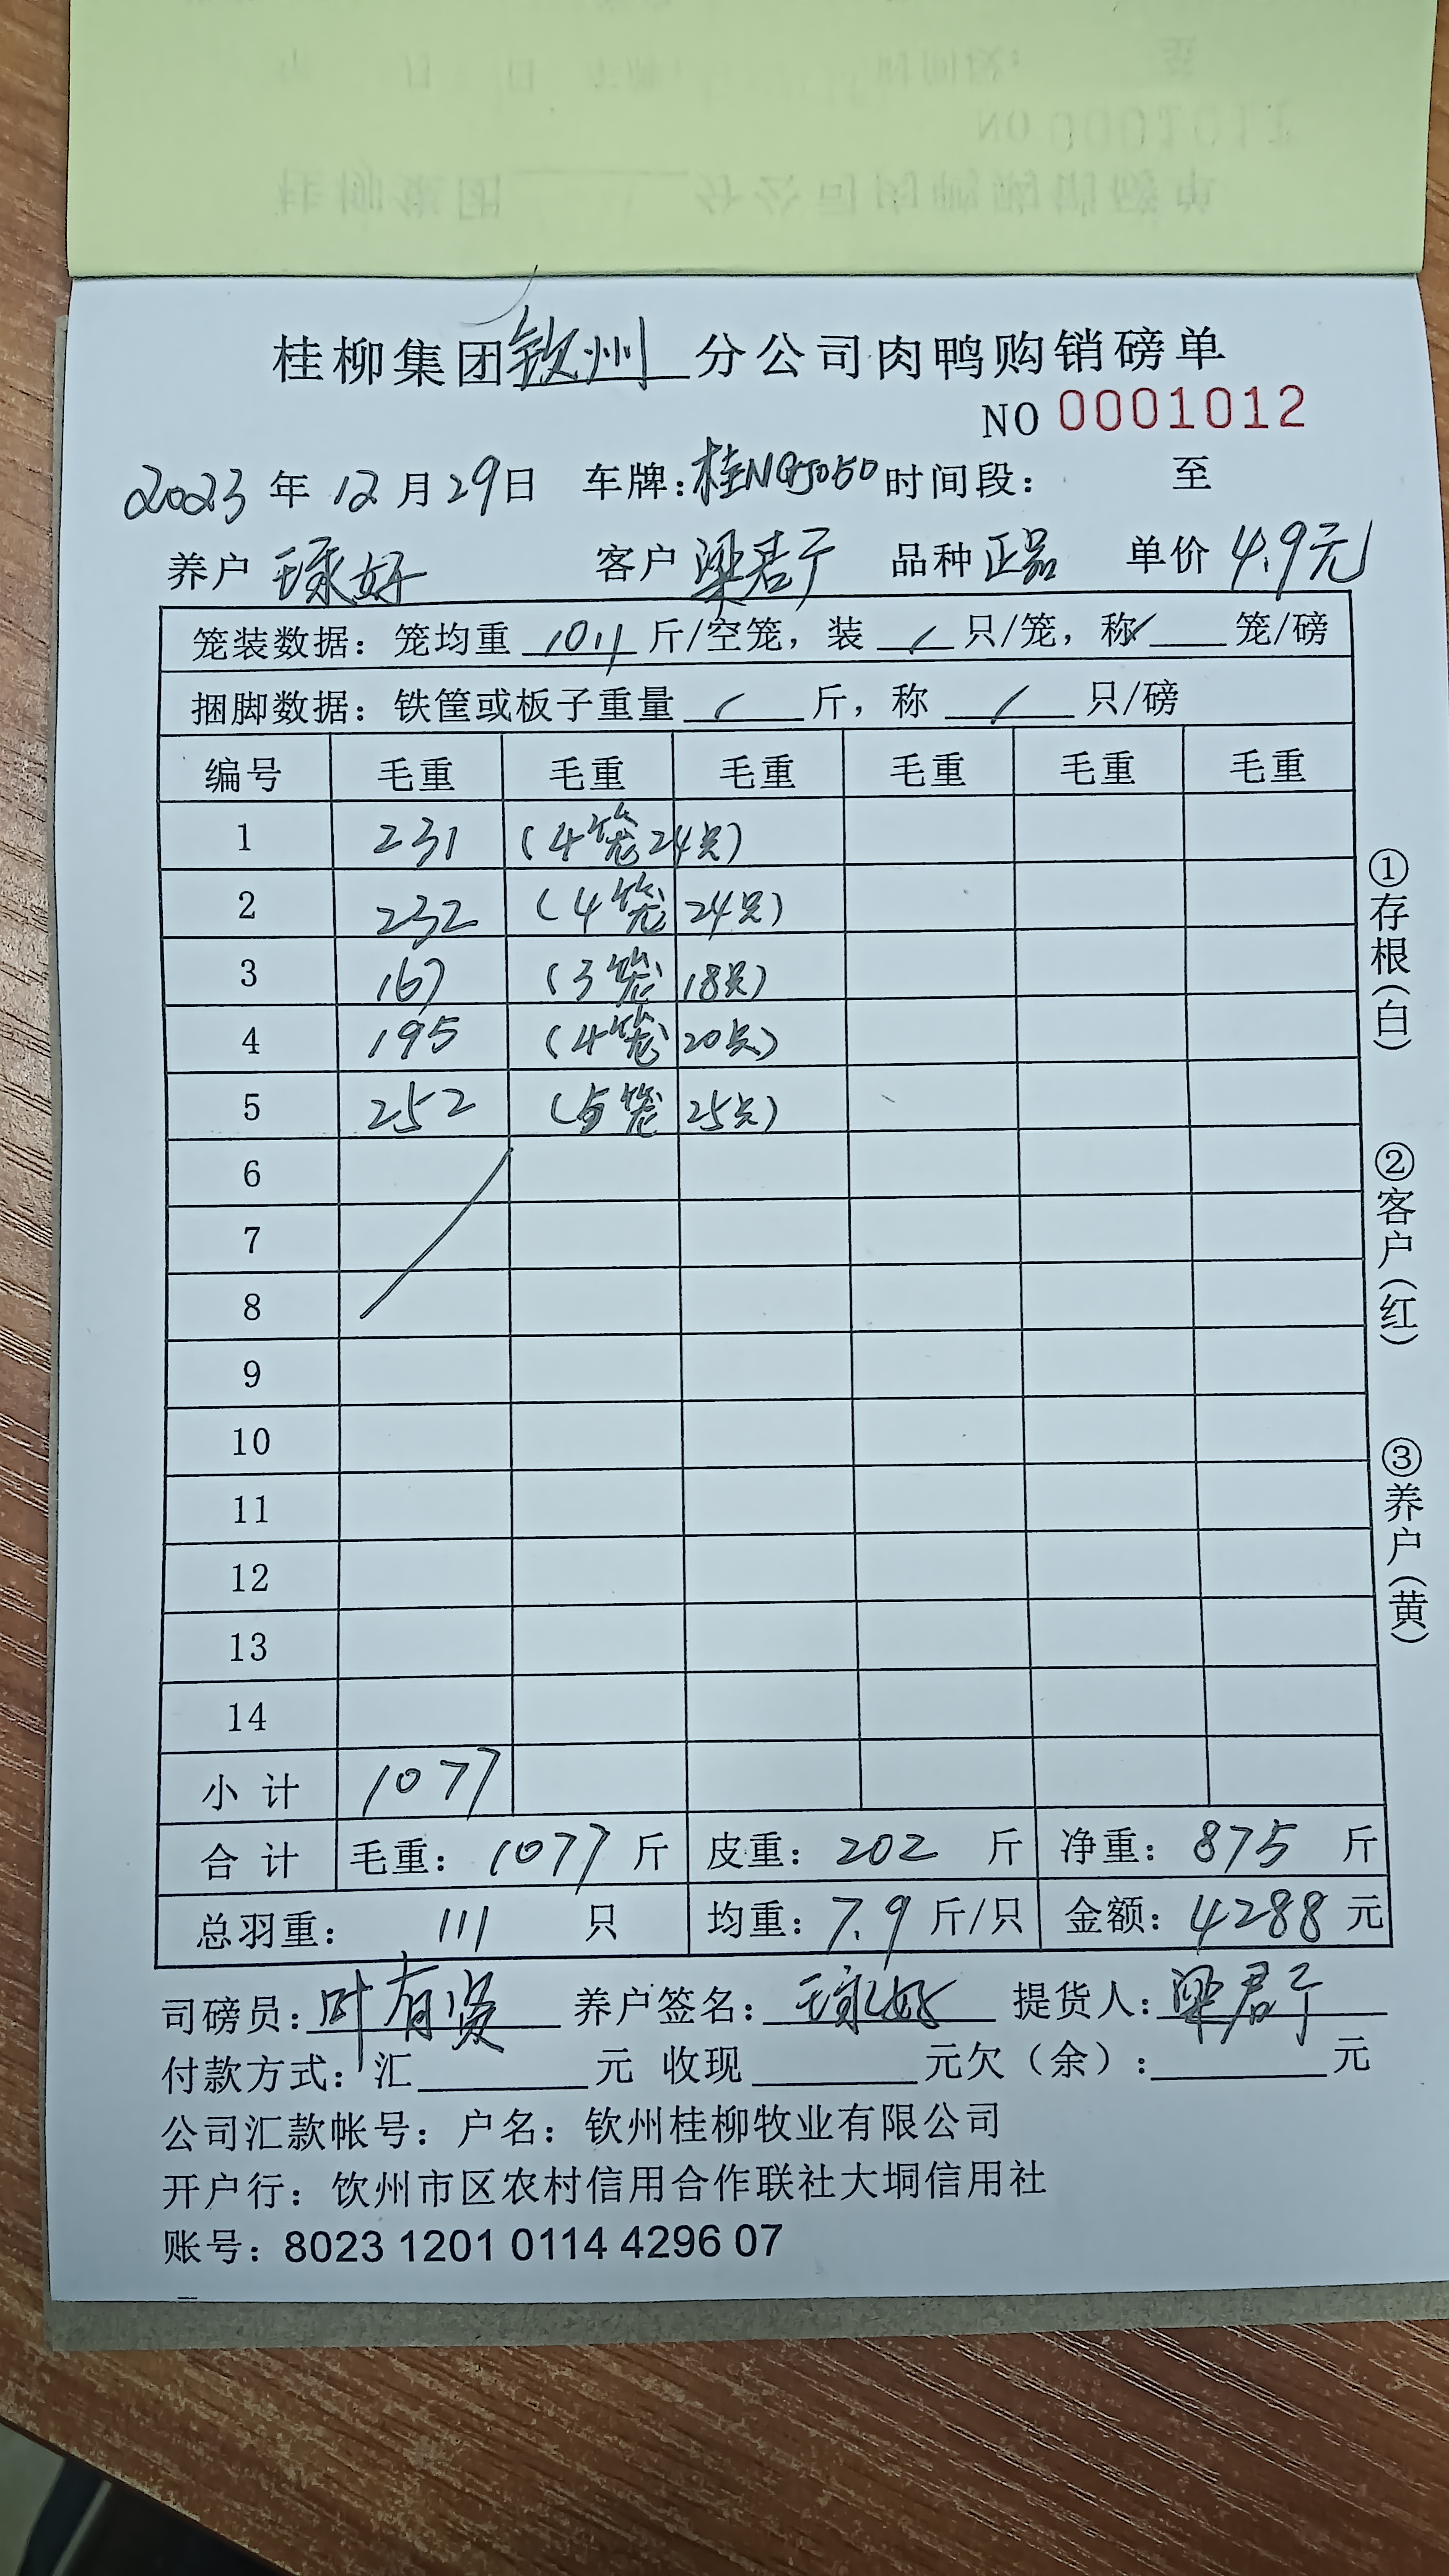 桂柳集团钦州分公司肉鸭购销磅单
NO 0001012
2023年12月29日 车牌:桂NGJ050 时间段: 至
养户 王永好 客户 梁君宁 品种 正品 单价 4.9元
笼装数据:笼均重 10.1 斤/空笼,装 / 只/笼,称 / 笼/磅
捆脚数据:铁筐或板子重量 / 斤,称 / 只/磅
编号 毛重 毛重 毛重 毛重 毛重 毛重
1 231 (4笼24只)
2 232 (4笼24只)
3 167 (3笼18只)
4 195 (4笼20只)
5 252 (5笼25只)
6
7
8
9
10
11
12
13
14
小计 1077
合计 毛重:1077斤 皮重:202斤 净重:875斤
总羽重:111只 均重:7.9斤/只 金额:4288元
司磅员:叶有贤 养户签名:王永好 提货人:梁君宁
付款方式:汇 元 收现 元欠(余): 元
公司汇款帐号:户名:钦州桂柳牧业有限公司
开户行:钦州市区农村信用合作联社大垌信用社
账号:8023 1201 0114 4296 07
①存根(白)
②客户(红)
③养户(黄)